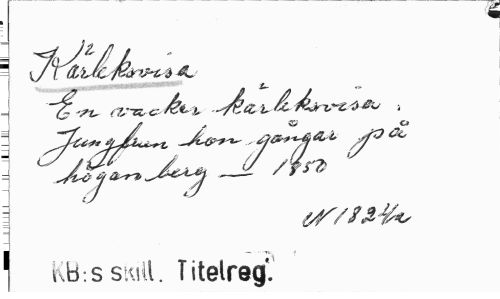 12
Kärleksvisa
En vacker kärleksvisa.
Jungfrun hon gångar på
högan berg — 1850
N 1824/a
KB:s skill. Titelreg.